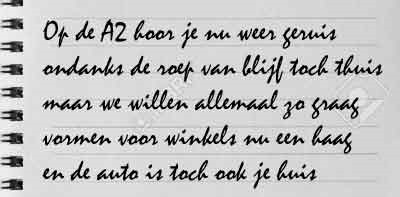 Op de A2 hoor je nu weer geruis
ondanks de roep van blijf toch thuis
maar we willen allemaal zo graag
vormen voor winkels nu een haag
en de auto is toch ook je huis